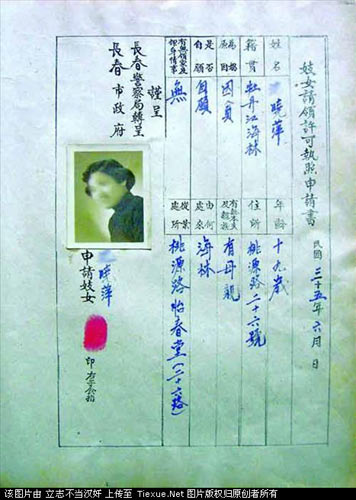 妓女請領許可執照申請書
民國三十五年六月 日
姓名 曉萍
年齡 十九歲
籍貫 牡丹江海林
住所 桃源路二十六號
為娼原因 因貧
有無本夫及親族 有母親
是否自願 自願
由何處來 海林
有無領家及押身情事 無
從業處所 桃源路怡春堂(二十六號)
謹呈
長春警察局轉呈
長春市政府
申請妓女 曉萍
印
该图片由 立志不当汉奸 上传至 Tiexue.Net 图片版权归原创者所有